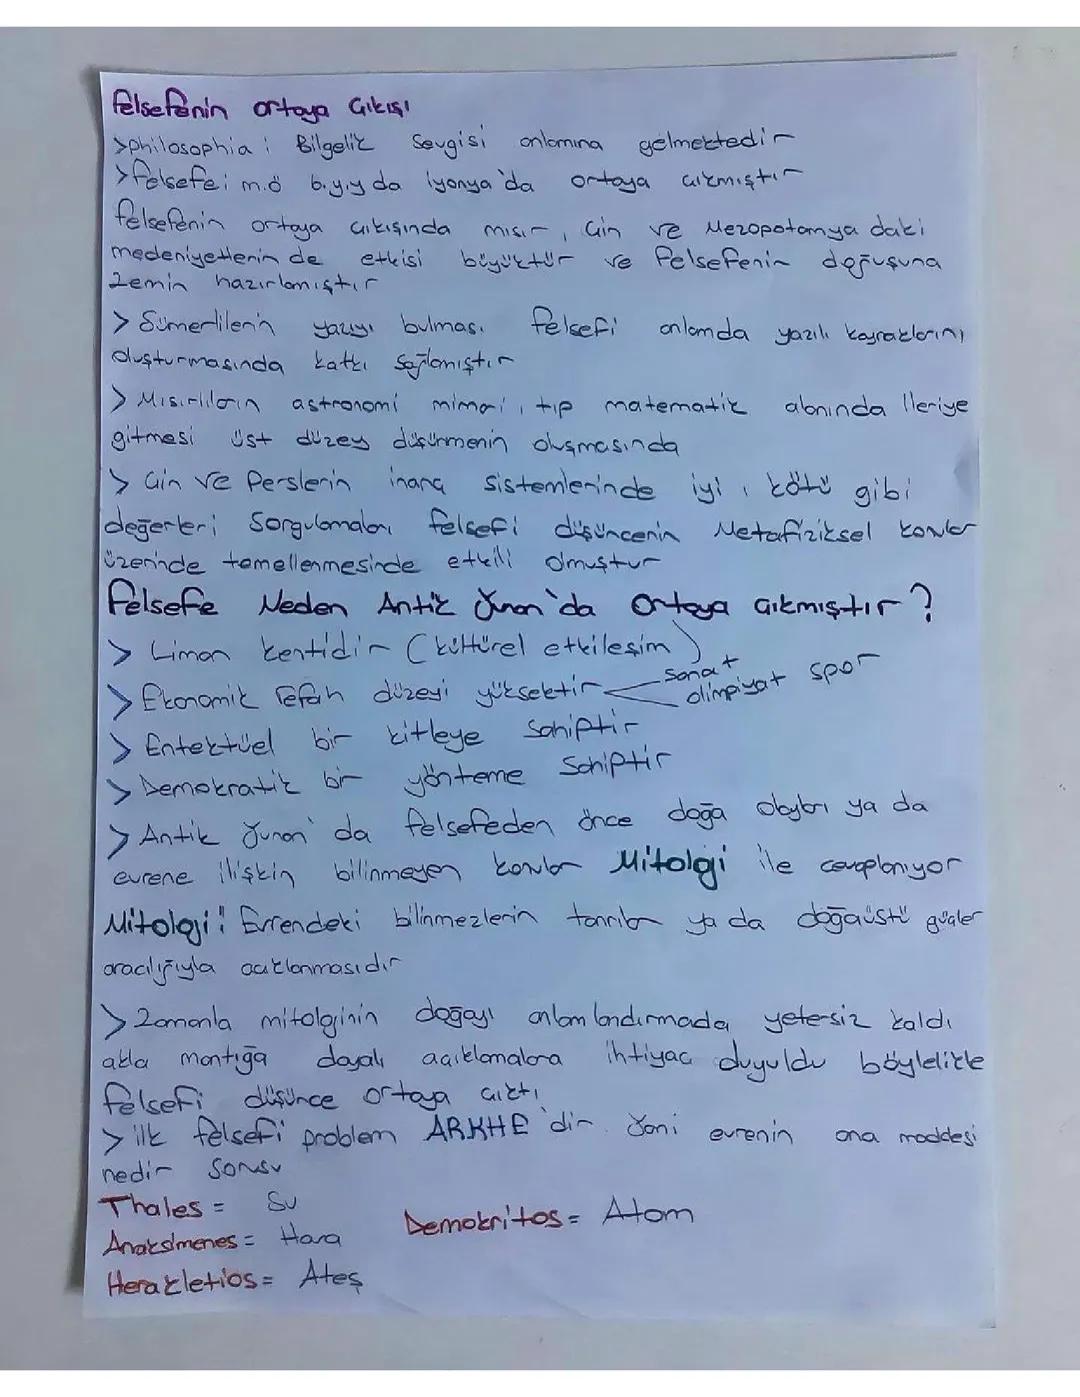 felsefenin ortaya Çıkışı
>philosophia : Bilgelik Sevgisi anlamına gelmektedir
>felsefe; m.ö 6.y.y da İyonya'da ortaya çıkmıştır
felsefenin ortaya çıkışında mısır, Çin ve Mezopotamya daki
medeniyetlerin de etkisi büyüktür ve felsefenin doğuşuna
zemin hazırlamıştır
> Sümerlilerin yazıyı bulması felsefi anlamda yazılı kaynaklarını
oluşturmasında katkı sağlamıştır
> Mısırlıların astronomi mimari, tıp matematik alanında İleriye
gitmesi üst düzey düşünmenin oluşmasında
> Çin ve Perslerin inanç sistemlerinde iyi, kötü gibi
değerleri Sorgulamaları felsefi düşüncenin Metafiziksel konular
üzerinde temellenmesinde etkili olmuştur
felsefe Neden Antik Yunan'da Ortaya çıkmıştır?
> Liman kentidir (kültürel etkileşim)
> Ekonomik refah düzeyi yüksektir < sanat olimpiyat spor
> Entektüel bir kitleye sahiptir
> Demokratik bir yönteme sahiptir
> Antik Yunan'da felsefeden önce doğa olayları ya da
evrene ilişkin bilinmeyen konular Mitoloji ile cevaplanıyor
Mitoloji: Evrendeki bilinmezlerin tanrılar ya da doğaüstü güçler
aracılığıyla açıklanmasıdır
> Zamanla mitolojinin doğayı anlamlandırmada yetersiz kaldı
akla mantığa dayalı açıklamalara ihtiyaç duyuldu böylelikle
felsefi düşünce ortaya çıktı
> ilk felsefi problem ARKHE'dir. Yani evrenin ana maddesi
nedir sorusu
Thales = Su
Demokritos = Atom
Anaksimenes = Hava
Herakletios = Ateş